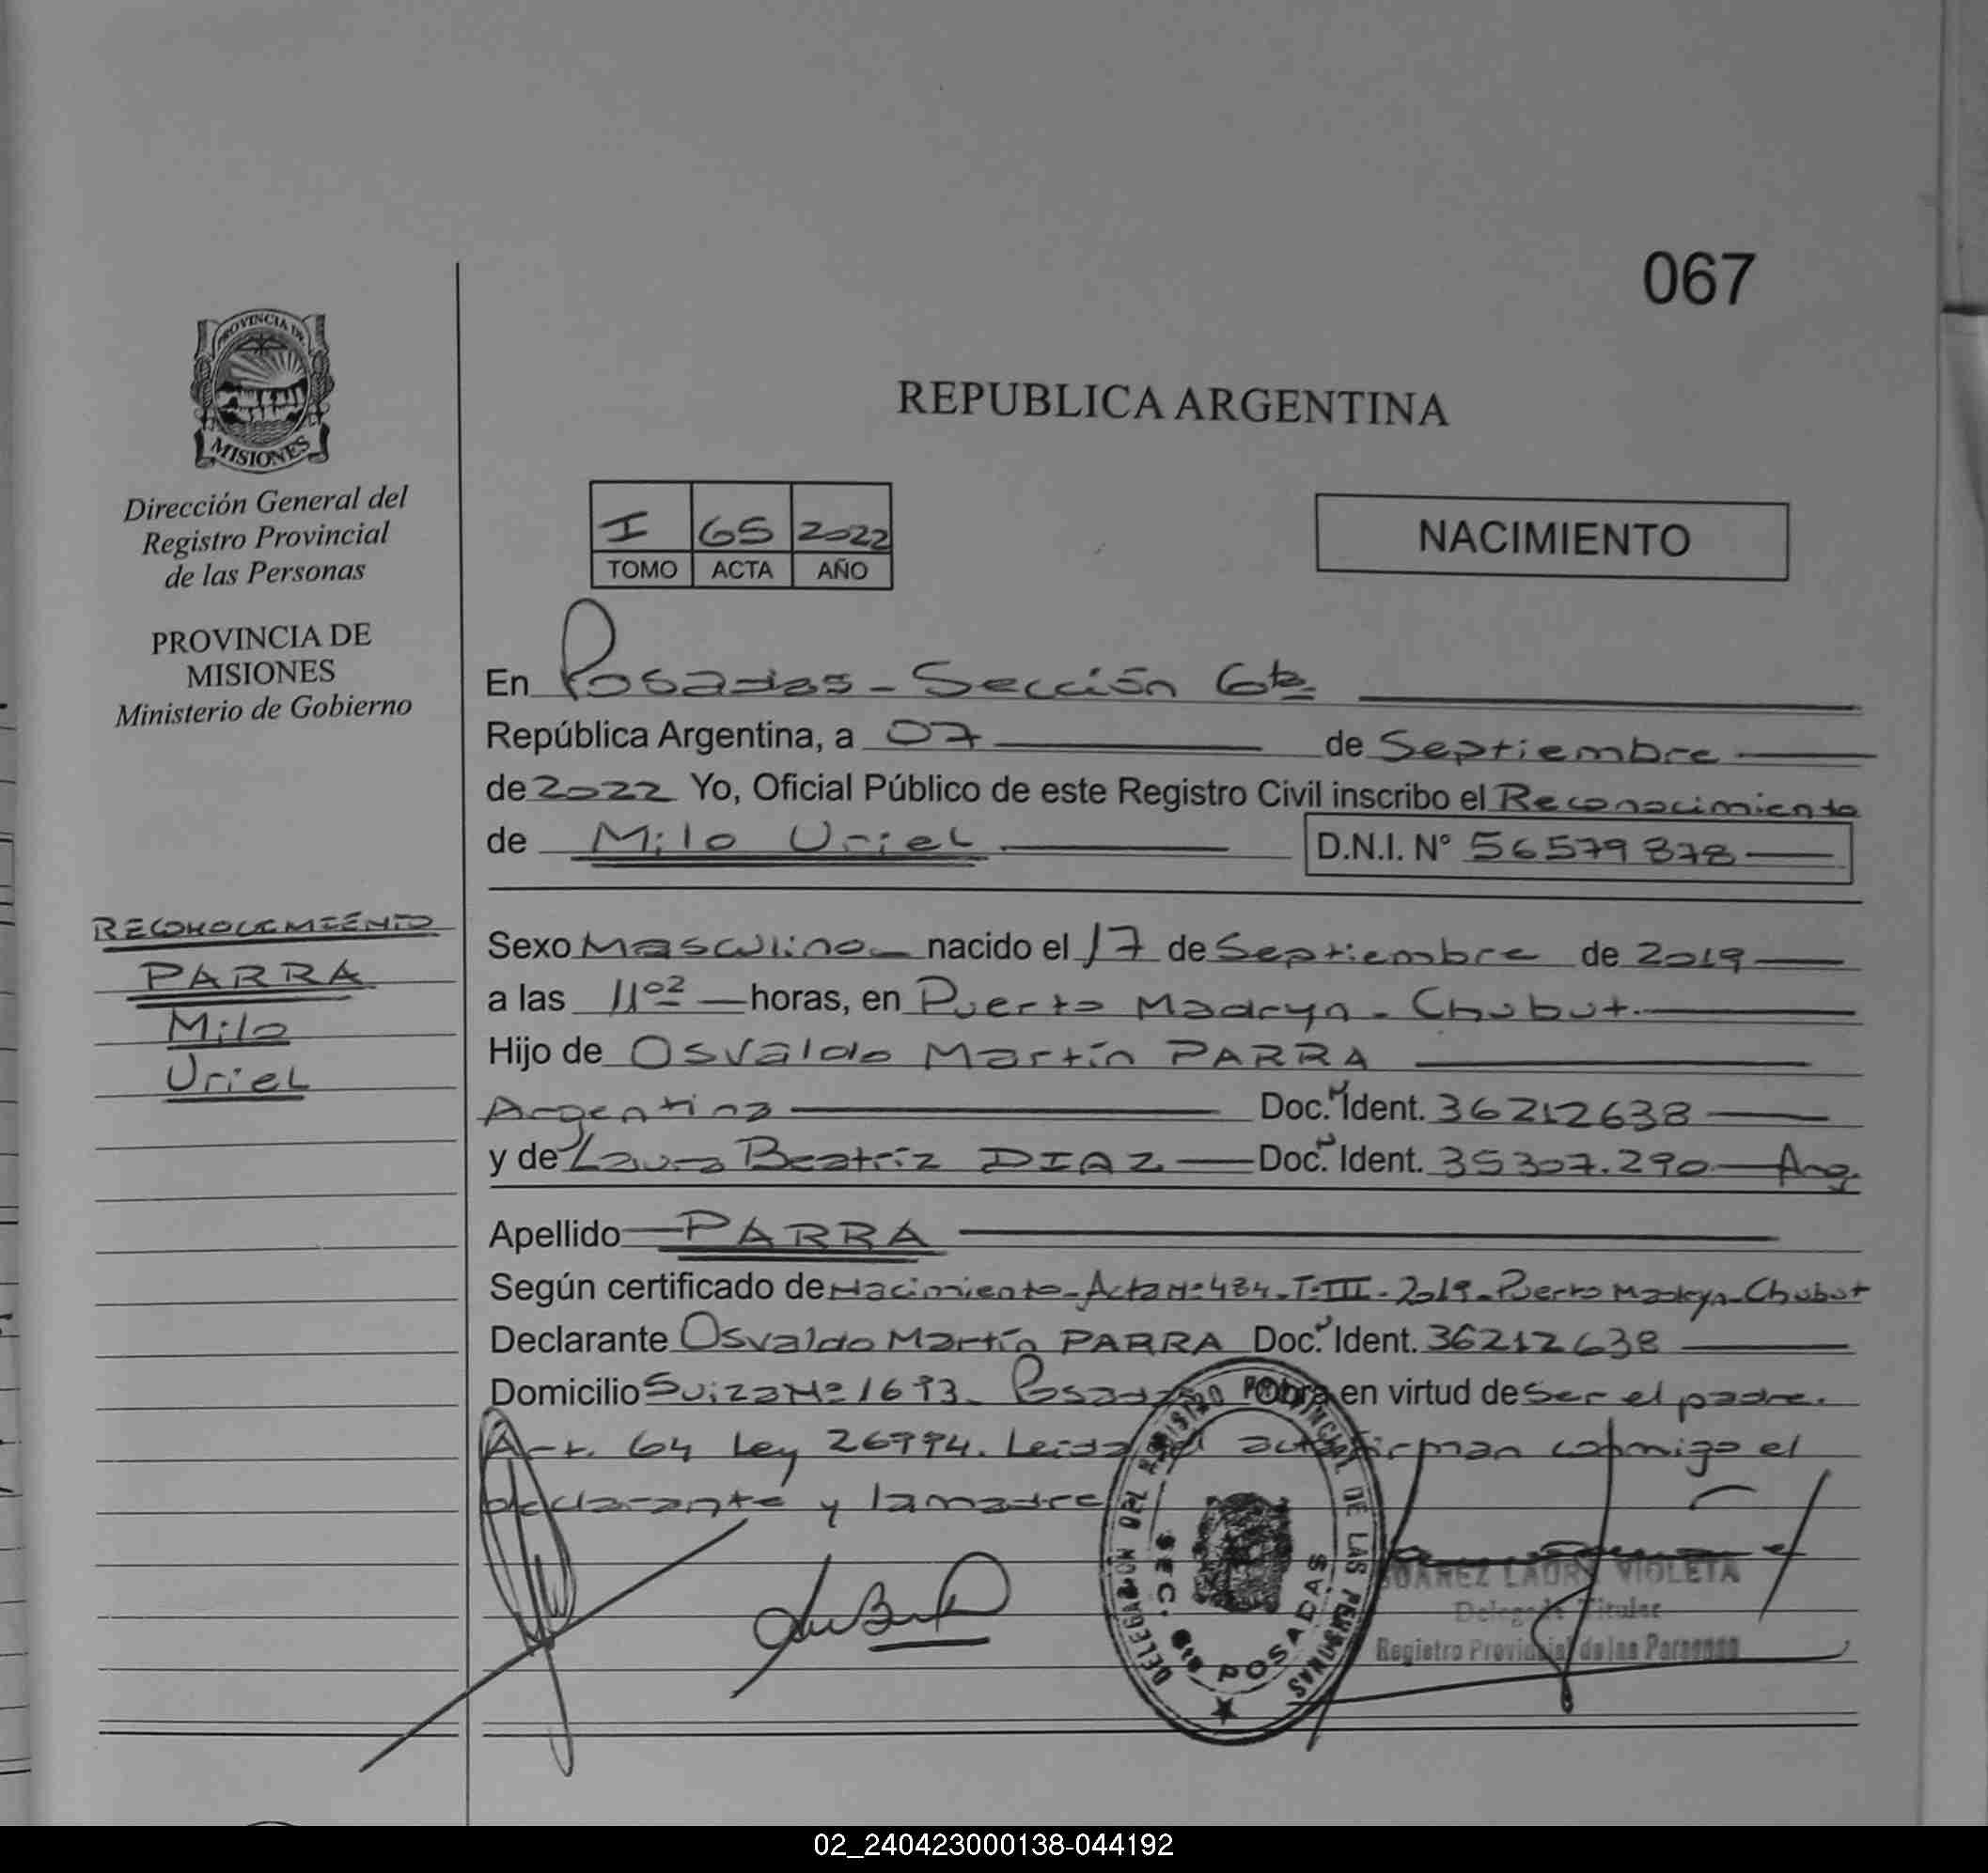 067
PROVINCIA DE
MISIONES
Dirección General del
Registro Provincial
de las Personas
PROVINCIA DE
MISIONES
Ministerio de Gobierno
REPUBLICA ARGENTINA
I 65 2022
TOMO ACTA AÑO
NACIMIENTO
En Posadas - Sección 6ta
República Argentina, a 07 de Septiembre
de 2022 Yo, Oficial Público de este Registro Civil inscribo el Reconocimiento
de Milo Uriel D.N.I. N° 56579878
RECONOCIMIENTO
PARRA
Milo
Uriel
Sexo Masculino nacido el 17 de Septiembre de 2019
a las 11⁰² horas, en Puerto Madryn - Chubut.
Hijo de Osvaldo Martín PARRA
Argentina Doc. Ident. 36212638
y de Laura Beatríz DIAZ Doc. Ident. 35307.290 Arg.
Apellido PARRA
Según certificado de Nacimiento - Acta N° 484 - T: III - 2019 - Puerto Madryn - Chubut
Declarante Osvaldo Martín PARRA Doc. Ident. 36212638
Domicilio Suiza N° 1693 - Posadas Obra en virtud de ser el padre.
Art. 64 Ley 26994. Leida el acta firman conmigo el
declarante y la madre
DELEGACION DEL REGISTRO PROVINCIAL DE LAS PERSONAS
SEC. POSADAS
SUAREZ LAURA VIOLETA
Delegada Titular
Registro Provincial de las Personas
02_240423000138-044192